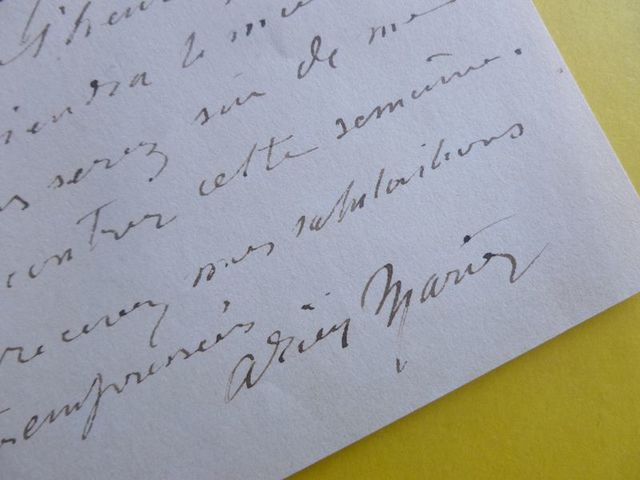 l'heure
iendra le mie
s serez sûr de me
contrer cette semaine.
recevez mes salutations
empressées
Adrien Marie